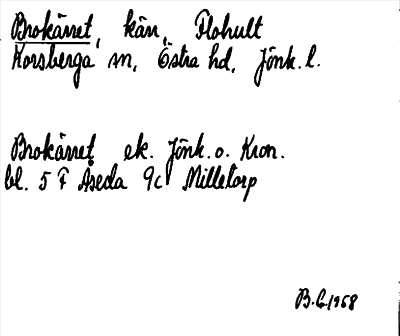 Brokärret, kärr, Flohult
Korsberga sn, Östra hd, Jönk. l.
Brokärret ek. Jönk. o. Kron.
bl. 5 F Åseda 9c Milletorp
B.G. 1968